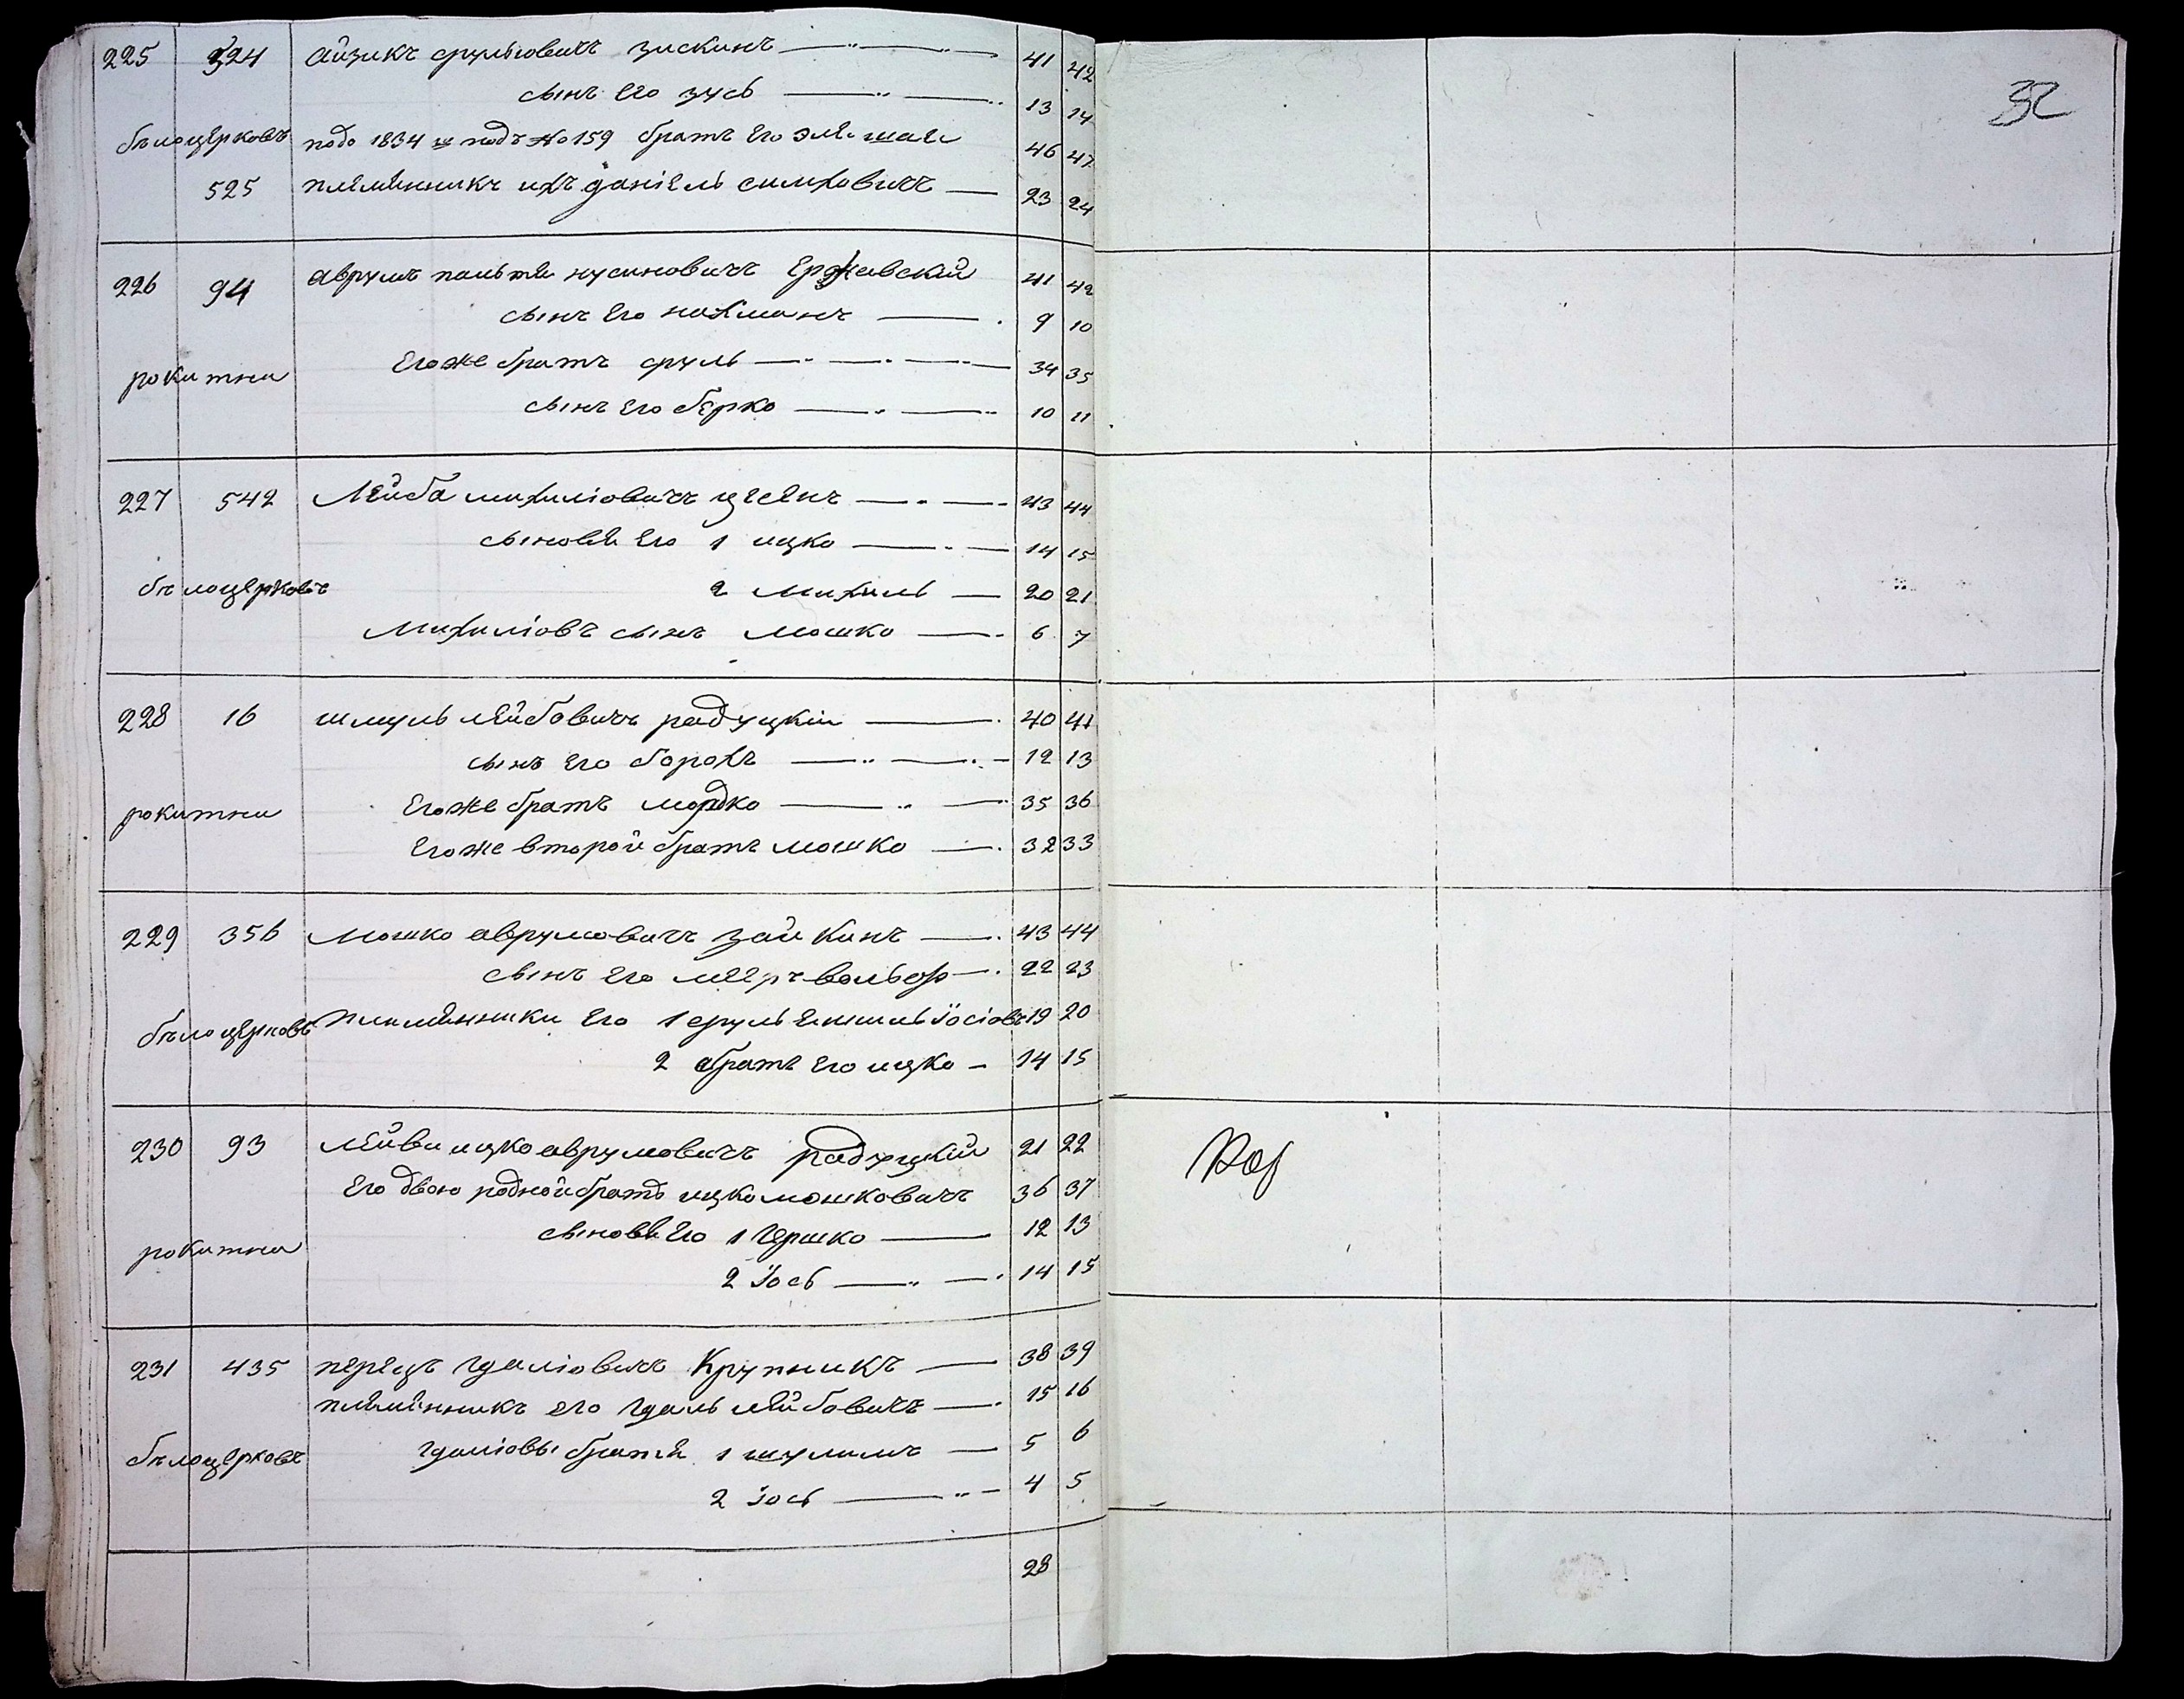 225 524 Айзикъ Срульовичъ Зискинъ 41 42
сынъ Его Зусь 13 14
бѣлоцерковъ подо 1834 подъ No 159 братъ Его 46 47
525 племѣнникъ ихъ Даніель Симховичъ 23 24
226 94 Аврумъ Пальтѣ Нусиновичъ 41 42
сынъ Его Нахманъ 9 10
рокитни Егоже братъ Сруль 34 35
сынъ Его Берко 10 11
227 542 Лейба Михиліовичъ 43 44
сыновѣ Его 1 Ицко 14 15
бѣлоцерковъ 2 Михиль 20 21
Михиліовъ сынъ Мошко 6 7
228 16 Шмуль Лейбовичъ Радуцкій 40 41
сынъ Его Борохъ 12 13
рокитни Егоже братъ Мордко 35 36
Егоже второй братъ Мошко 32 33
229 356 Мошко Аврумовичъ Зайкинъ 43 44
сынъ Его Мееръ Вольфъ 22 23
бѣлоцерковъ племѣнники Его 1 Сруль Іосіовъ 19 20
2 братъ Его Ицко 14 15
230 93 Лейви Ицко Аврумовичъ Радуцкій 21 22
Его двою родной братъ Ицко Мошковичъ 36 37
сыновѣ Его 1 Гершко 12 13
рокитни
2 Іось 14 15
231 435 Перецъ Гдаліовичъ Крупникъ 38 39
племѣнникъ его Гдаль Лейбовичъ 15 16
бѣлоцерковъ Гдаліовы братѣ 1 Шулимъ 5 6
2 Іось 4 5
28
32